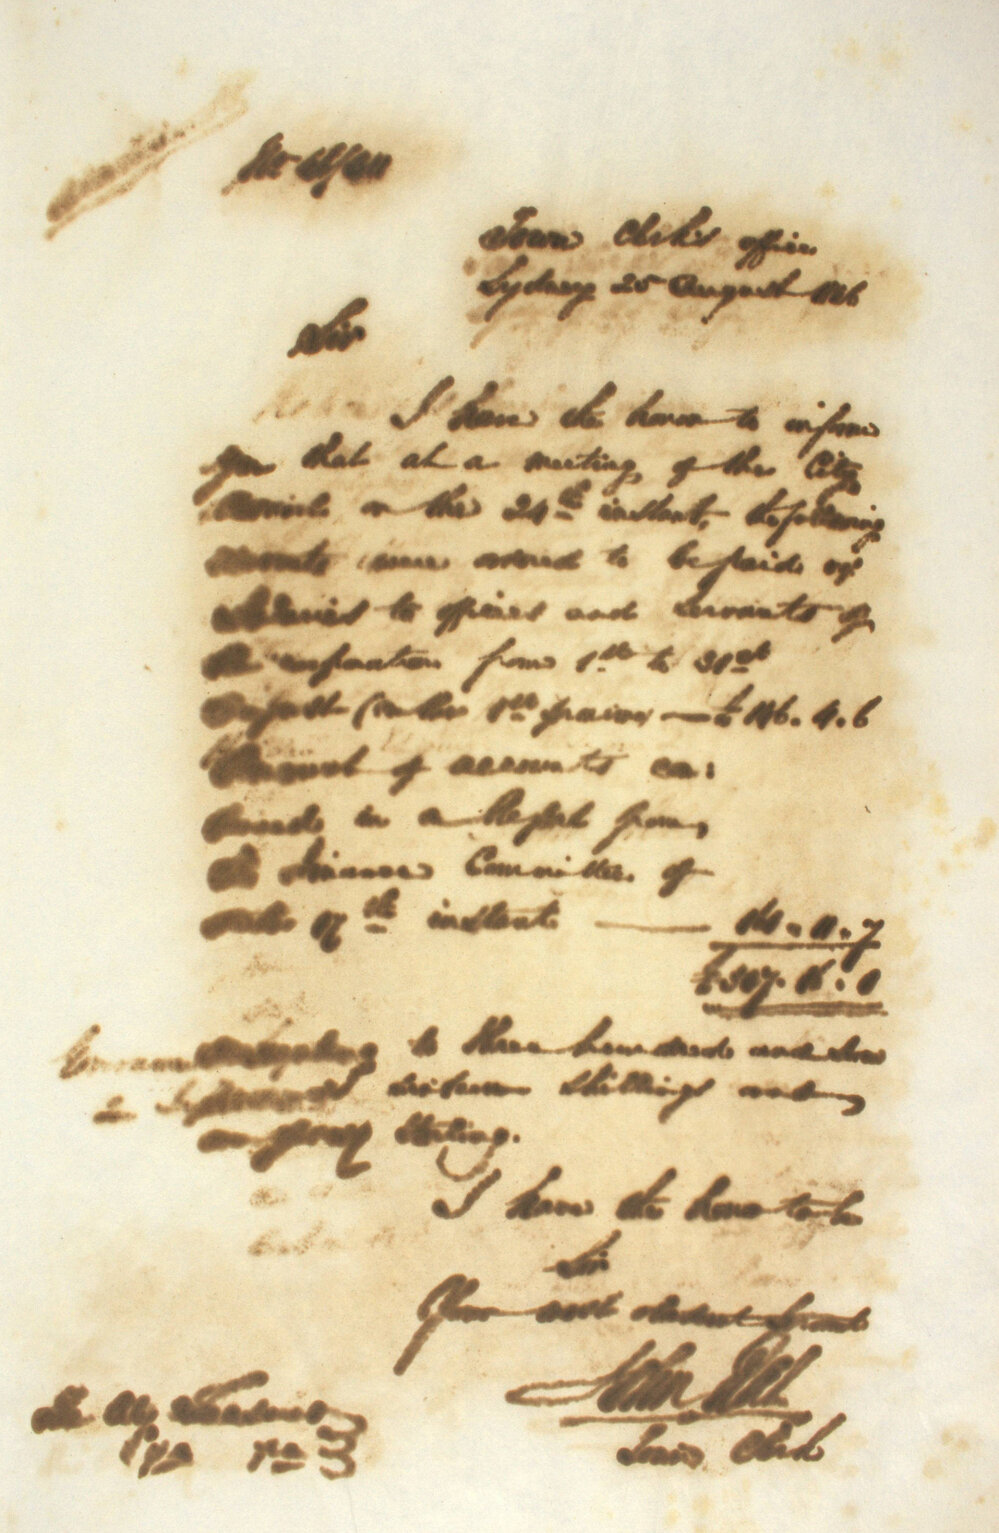 Town Clerk's office
Sydney 25 August
Sir
I have the honor to inform
you that at a meeting of the City
Council on the 24th instant, the following
amounts were ordered to be paid viz
Salaries to officers and servants of
the corporation from 1st to 31st
August (in the 1st £ 146. 4. 6
Amount of accounts con:
tained in a Report from
the Finance Committee of
date 17th instant — 161. 11. 7
£307. 16. 1
amounting to three hundred and seven
pounds sixteen shillings and
one penny Sterling.
I have the honor to be
Sir
Your most obedient Servant
John
Town Clerk
The City Treasurer